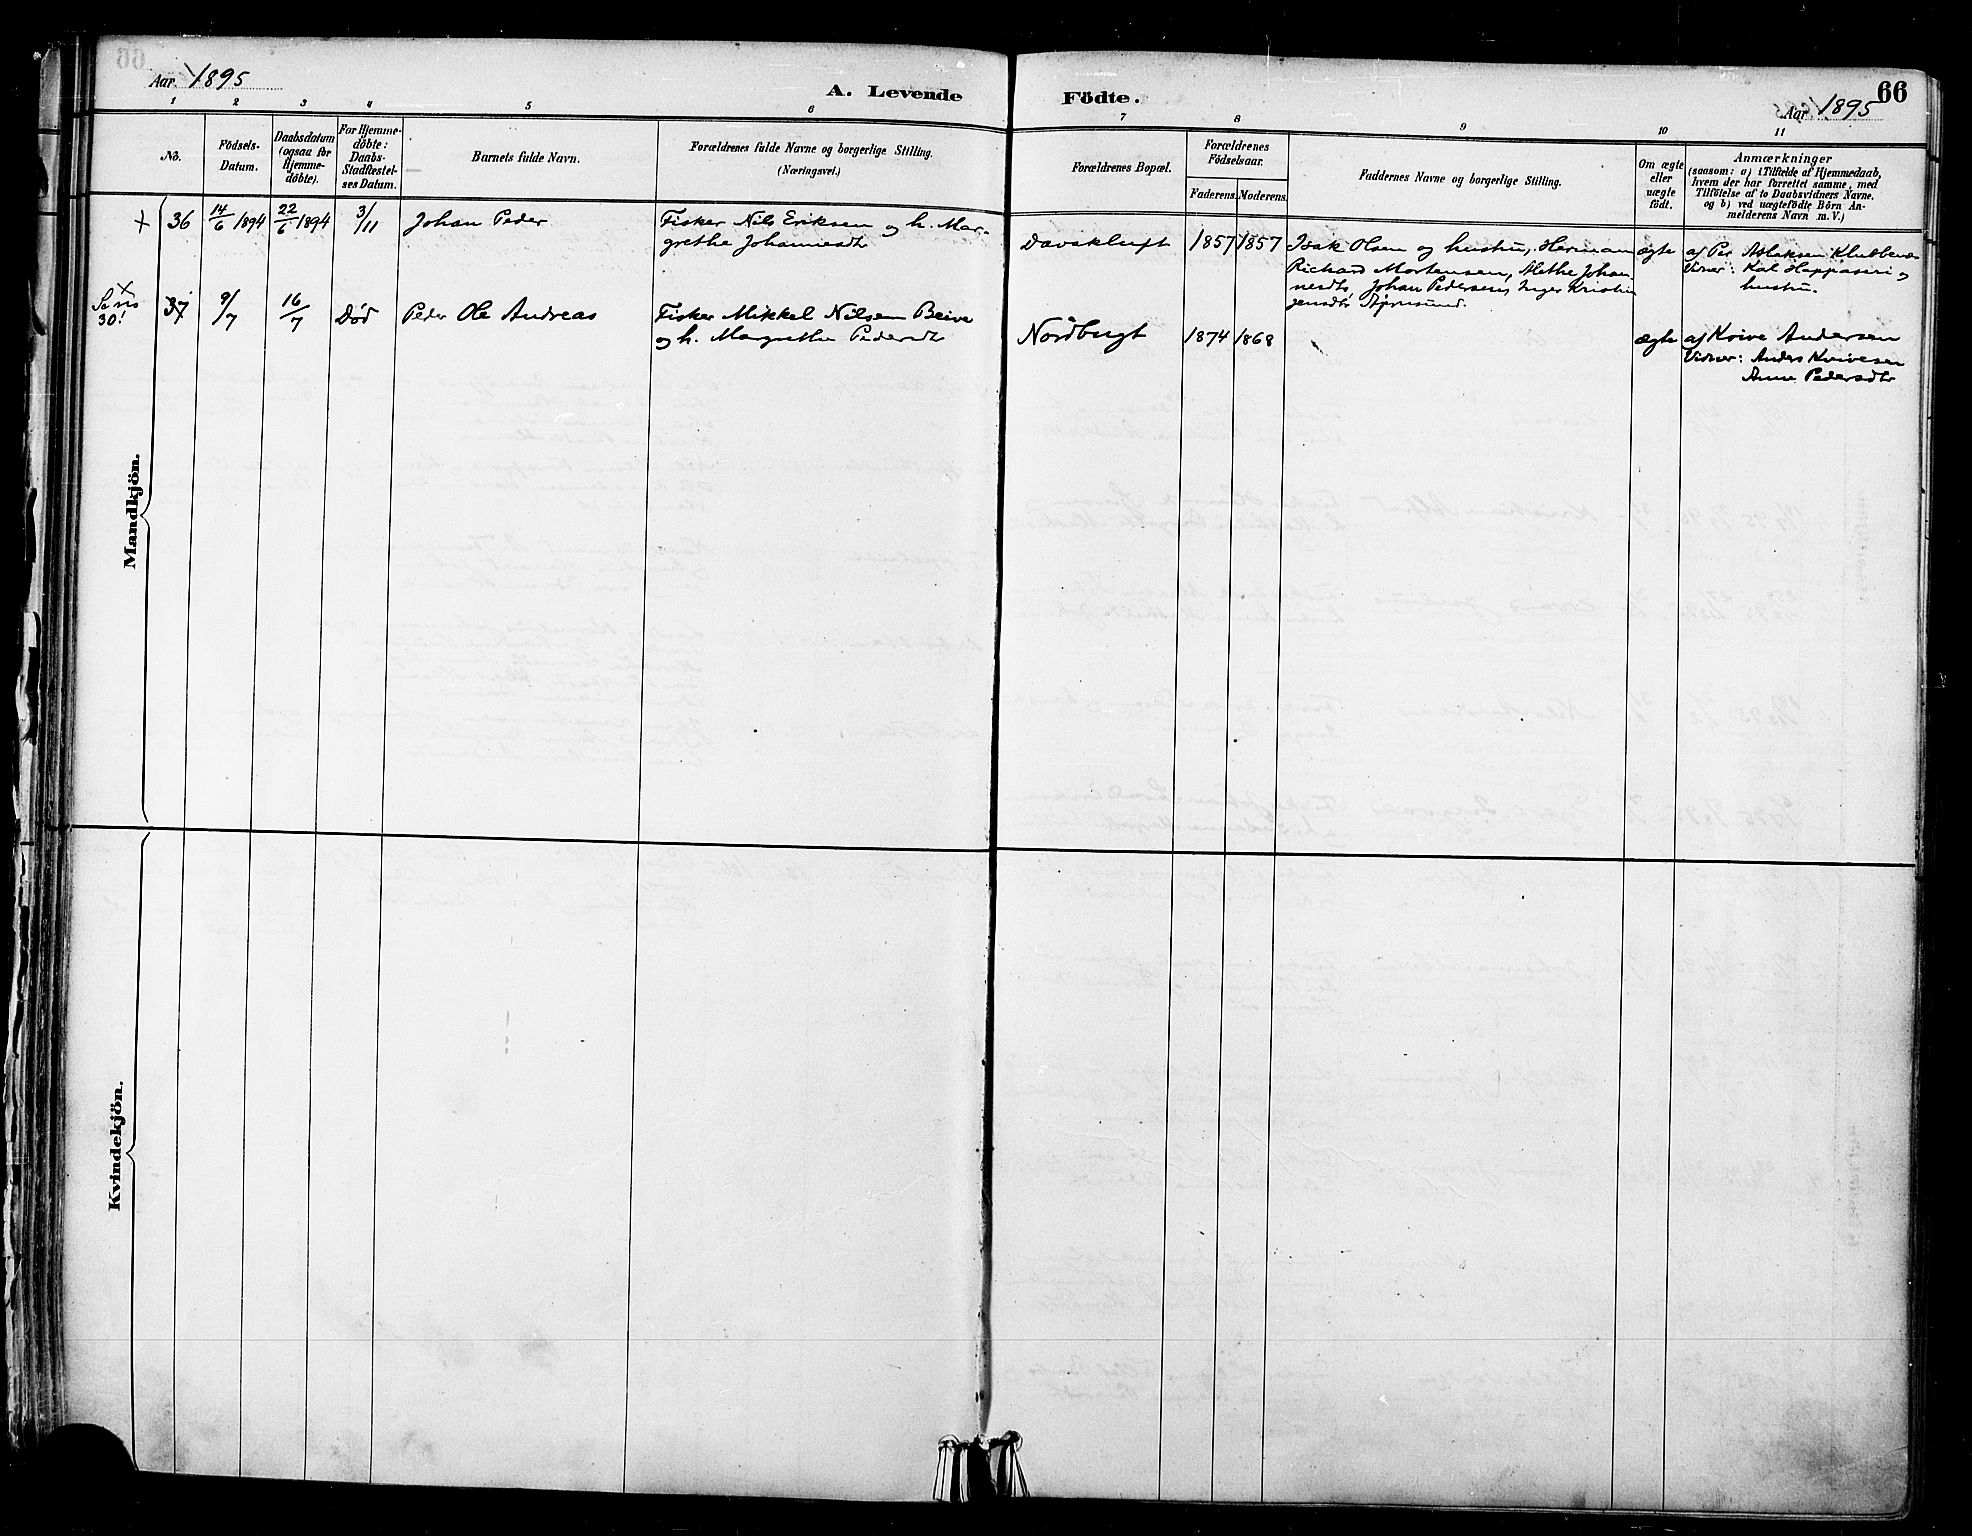 66
Aar 1895
A. Levende
Födte.
Aar 1895
1 2 3 4 5 6 7 8 9 10 11
No.
Födsels-
Datum.
Daabsdatum
(ogsaa for
Hjemme-
döbte).
For Hjemme-
döbte:
Daabs-
Stadfæstel-
ses Datum.
Barnets fulde Navn.
Forældrenes fulde Navne og borgerlige Stilling.
(Næringsvei.)
Forældrenes Bopæl.
Forældrenes
Födselsaar.
Faderens. Moderens.
Faddernes Navne og borgerlige Stilling.
Om ægte
eller
uægte
födt.
Anmærkninger
(saasom: a) i Tilfælde af Hjemmedaab,
hvem der har forrettet samme, med
Tilföielse af to Daabsvidners Navne,
og b) ved uægtefödte Börn An-
melderens Navn m. V.)
Mandkjön.
+ 36 14/6 1894 22/6 1894 3/11 Johan Peder
Fisker Nils Eriksen og h. Mar-
grethe Johannesdtr
Davskluft 1857 1857
Isak Olsen og hustru, Herman
Richard Mortensen, Alethe Johan
nesdtr, Johan Pedersen, Inger Kristi
gensdtr
ægte
af Per Aslaksen Klubbenæs
Vidner:
hustru.
x
Se no
30!
37 9/7 16/7 Død Peder Ole Andreas
Fisker Mikkel Nilsen Beive
og h. Margrethe Pedersdtr
Nordbugt 1874 1868
ægte
af Kvive Andersen
Vidner: Anders Kvivesen
Anne Pedersdtr
Kvindekjön.